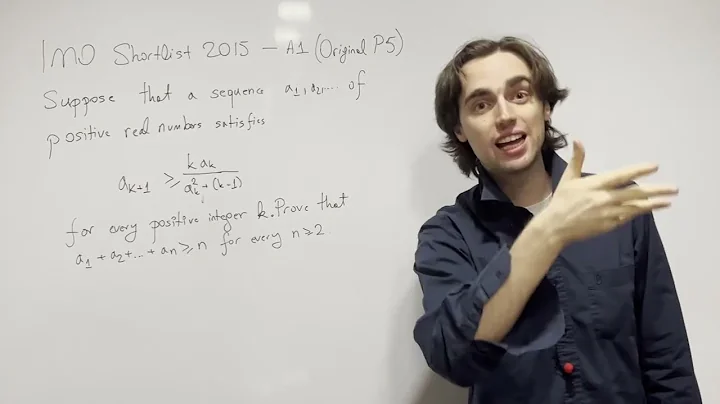 IMO Shortlist 2015 – A1 (Original P5)
Suppose that a sequence a₁, a₂, ... of
positive real numbers satisfies
aₖ₊₁ ≥ k aₖ / (aₖ² + (k-1))
for every positive integer k. Prove that
a₁ + a₂ + ... + aₙ ≥ n for every n ≥ 2.